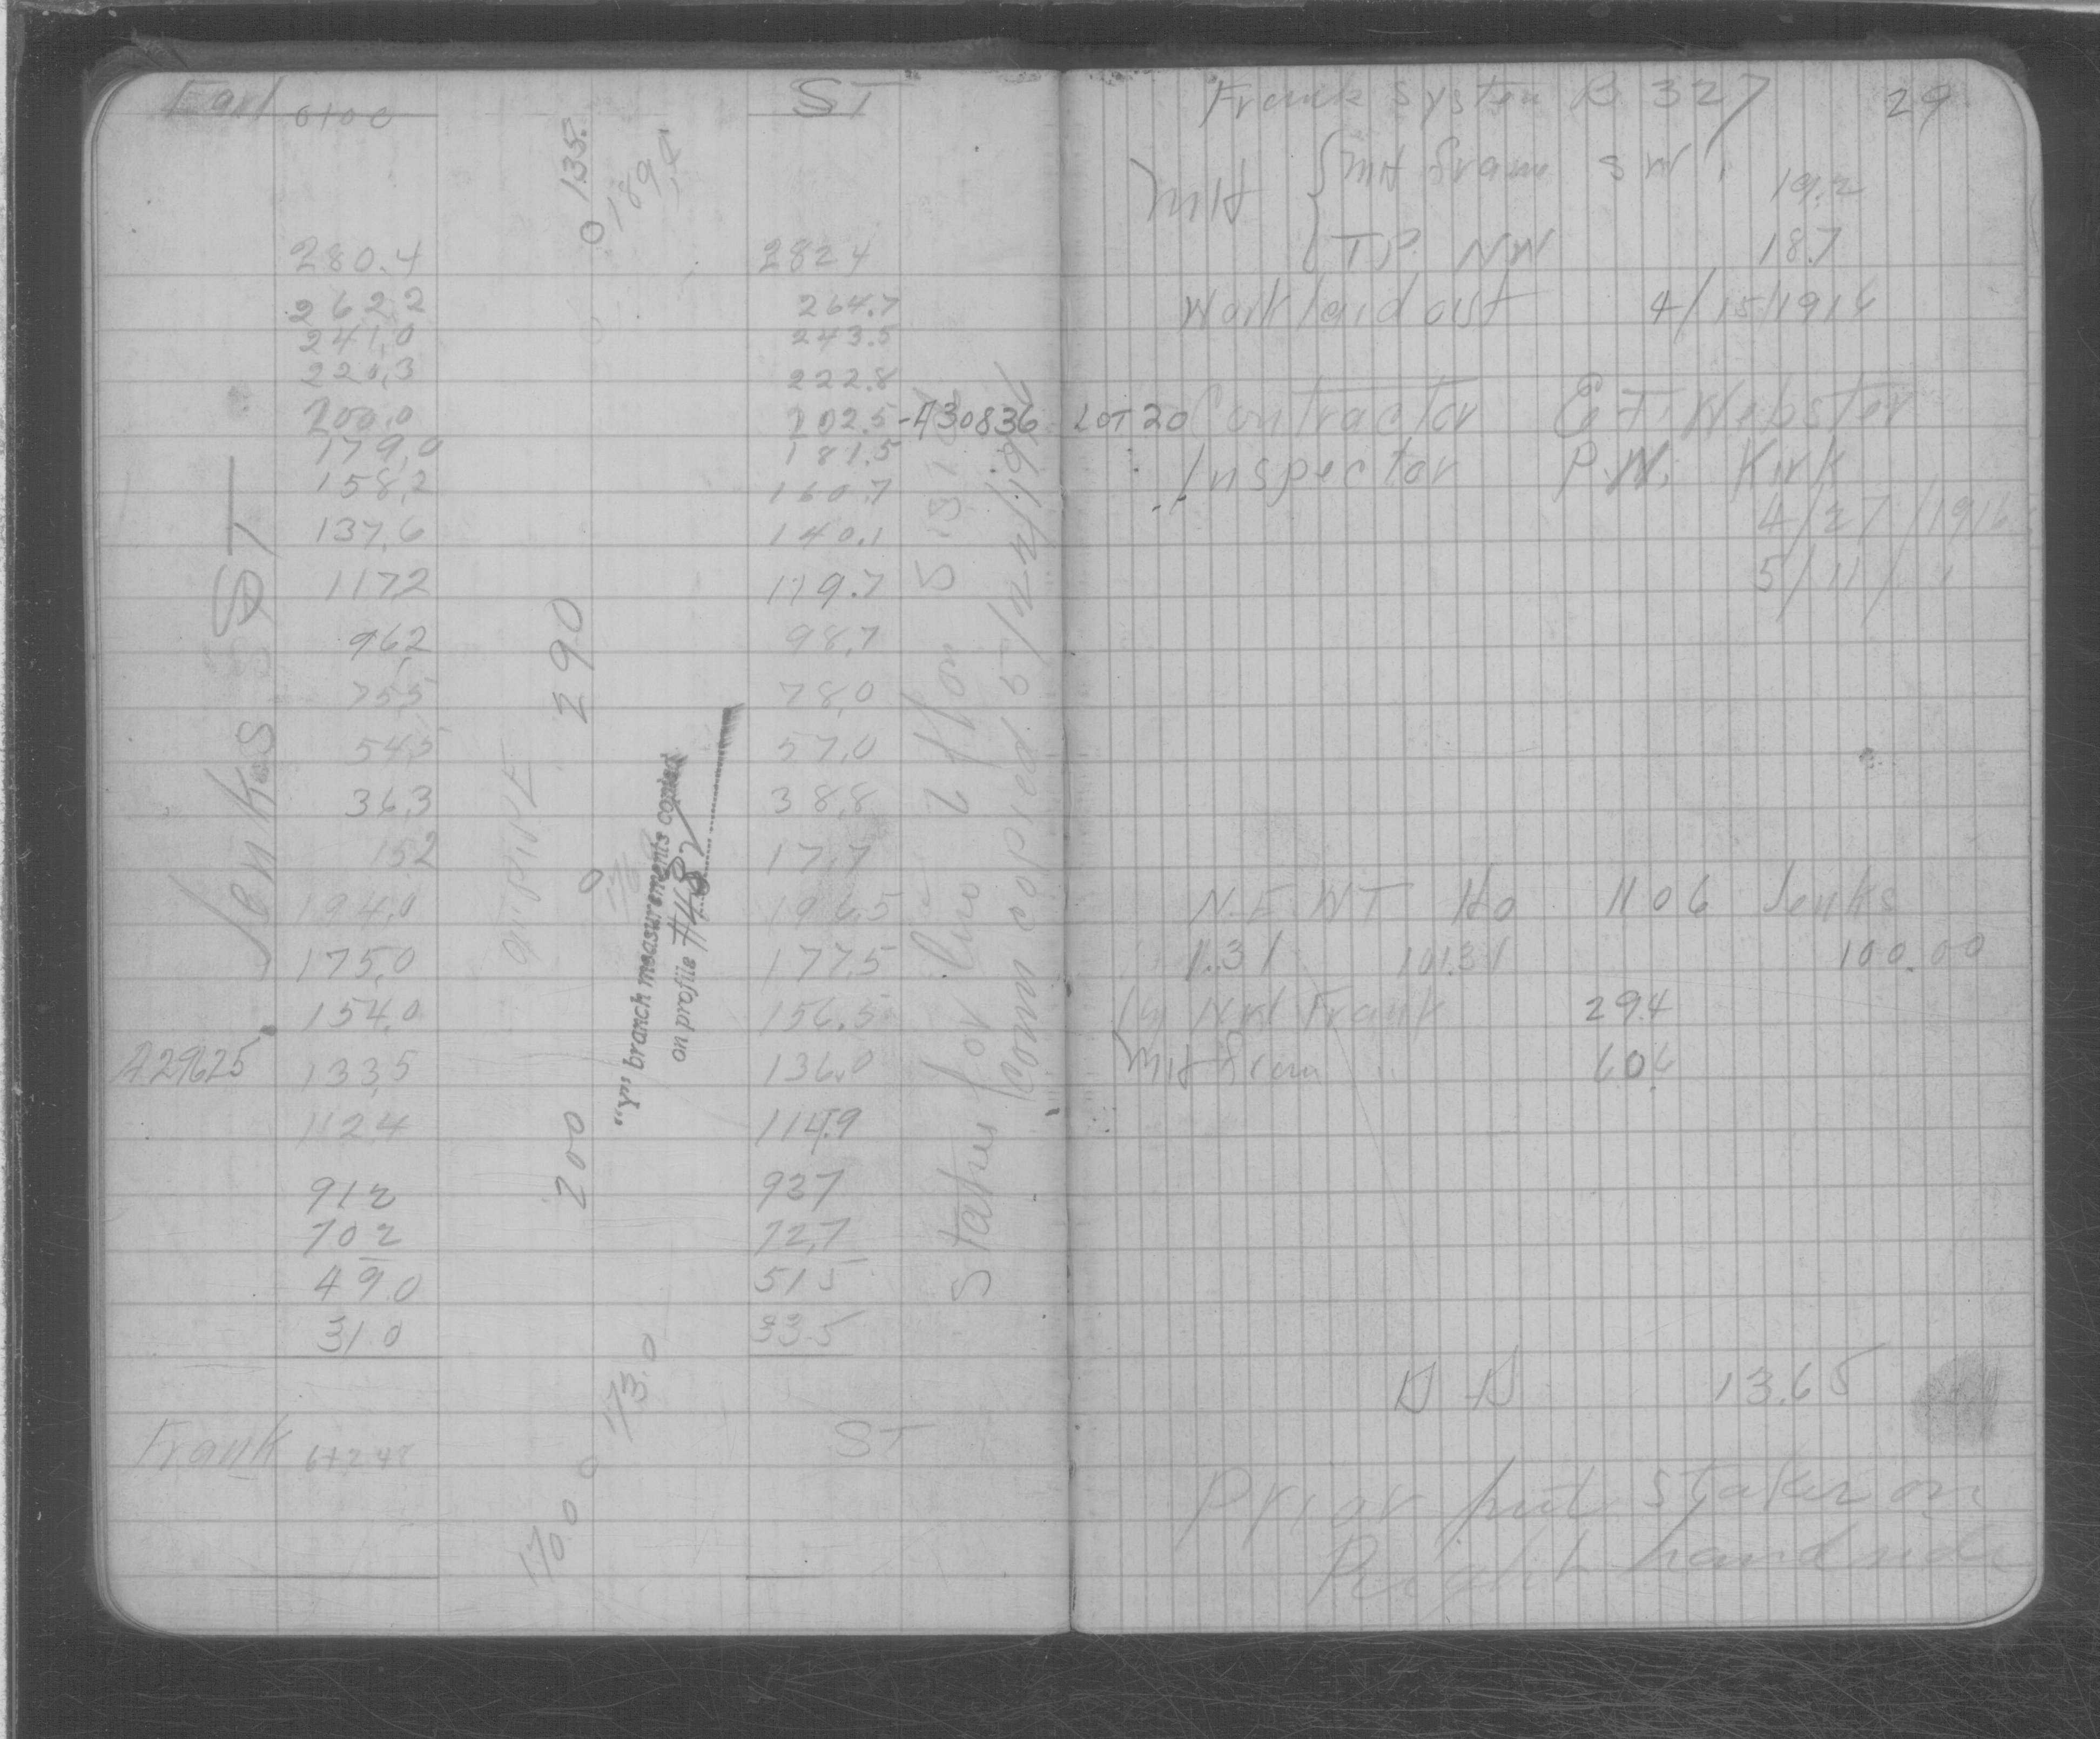 Earl 0+00 ST
0 135.
0 189.0
280.4 282.4
262.2 264.7
241.0 243.5
220.3 222.8
200.0 202.5 -A30836 LOT 20
179.0 181.5
158.2 160.7
137.6 140.1
117.2 119.7
96.2 98.7
75.5 78.0
54.5 57.0
36.3 38.8
15.2 17.7
194.0 196.5
175.0 177.5
154.0 156.5
A29625 133.5 136.0
112.4 114.9
91.2 93.7
70.2 72.7
49.0 51.5
31.0 33.5
Frank 6+242 ST
Jenks ST
9" PIPE
290
0
200
173.0
0
170.0
"Y" branch measurements copied
on profile #4682
Stakes for line & flow 5-18-16
Conn copied 5/22/1916
Frank System B 327 29
MH { MH frame SW 19.2
{ T.P. NW 18.7
Work laid out 4/15/1916
Contractor E.T. Webster
Inspector P.W. Kirk
4/27/1916
5/11/"
N.E. WT Ho 1106 Jenks
1.31 101.31 100.00
NW Frank 29.4
MH fram 60.6
13.65
Prior put stakes on
Right hand side